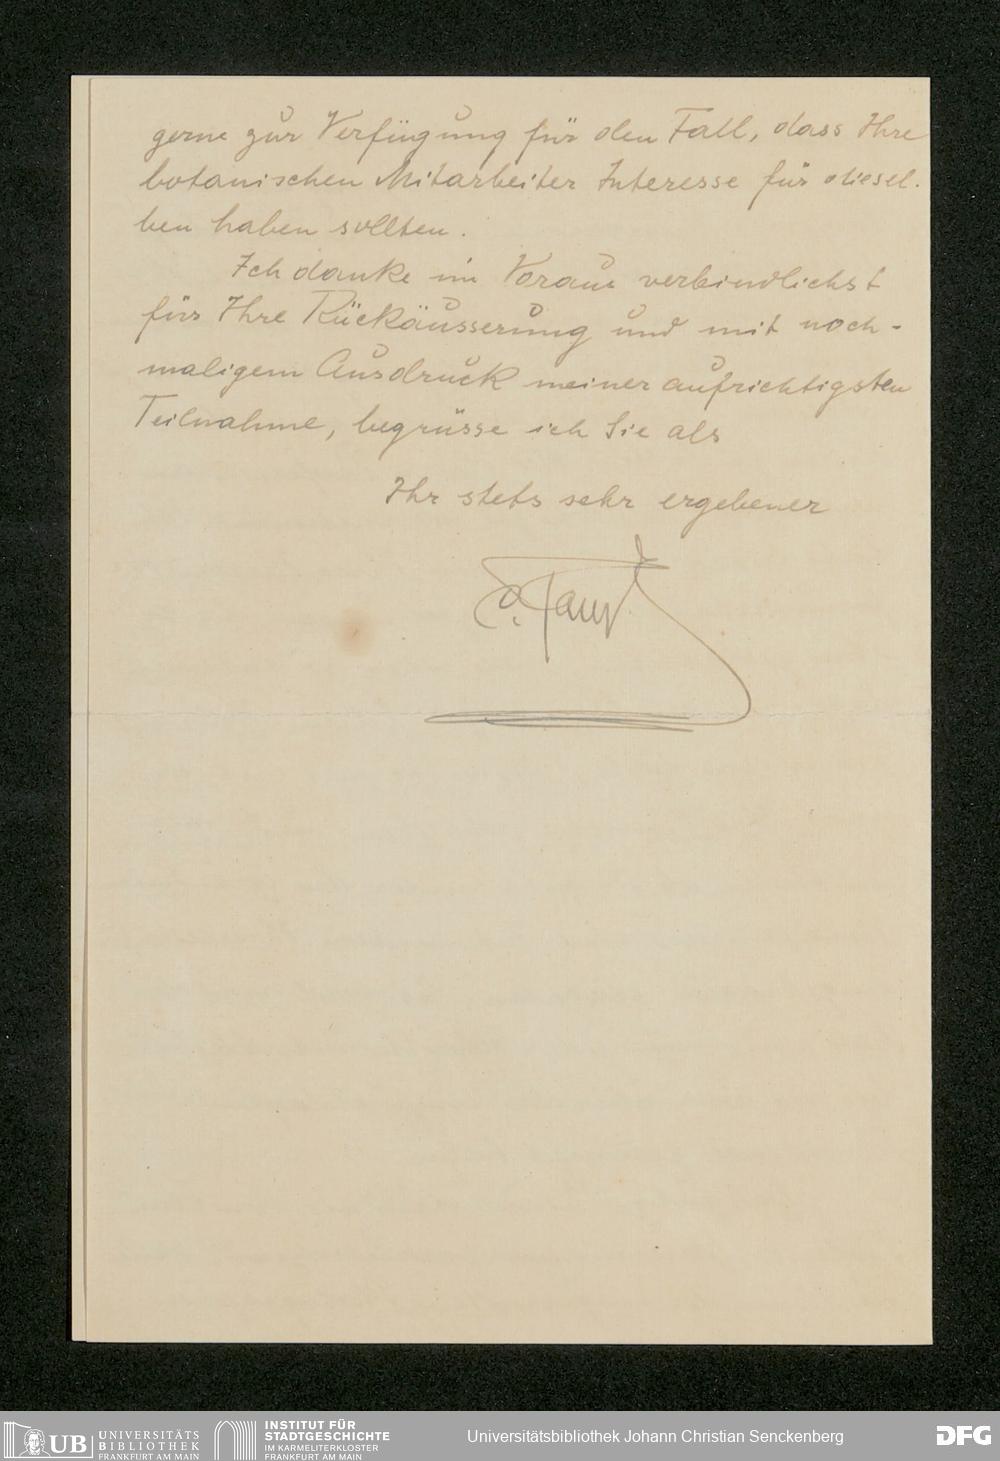 gerne zur Verfügung für den Fall, dass Ihre
botanischen Mitarbeiter Interesse für diesel-
ben haben sollten.
Ich danke im Voraus verbindlichst
für Ihre Rückäusserung und mit noch-
maligem Ausdruck meiner aufrichtigsten
Teilnahme, begrüsse ich Sie als
Ihr stets sehr ergebener
UB
UNIVERSITÄTS
BIBLIOTHEK
FRANKFURT AM MAIN
INSTITUT FÜR
STADTGESCHICHTE
IM KARMELITERKLOSTER
FRANKFURT AM MAIN
Universitätsbibliothek Johann Christian Senckenberg
DFG